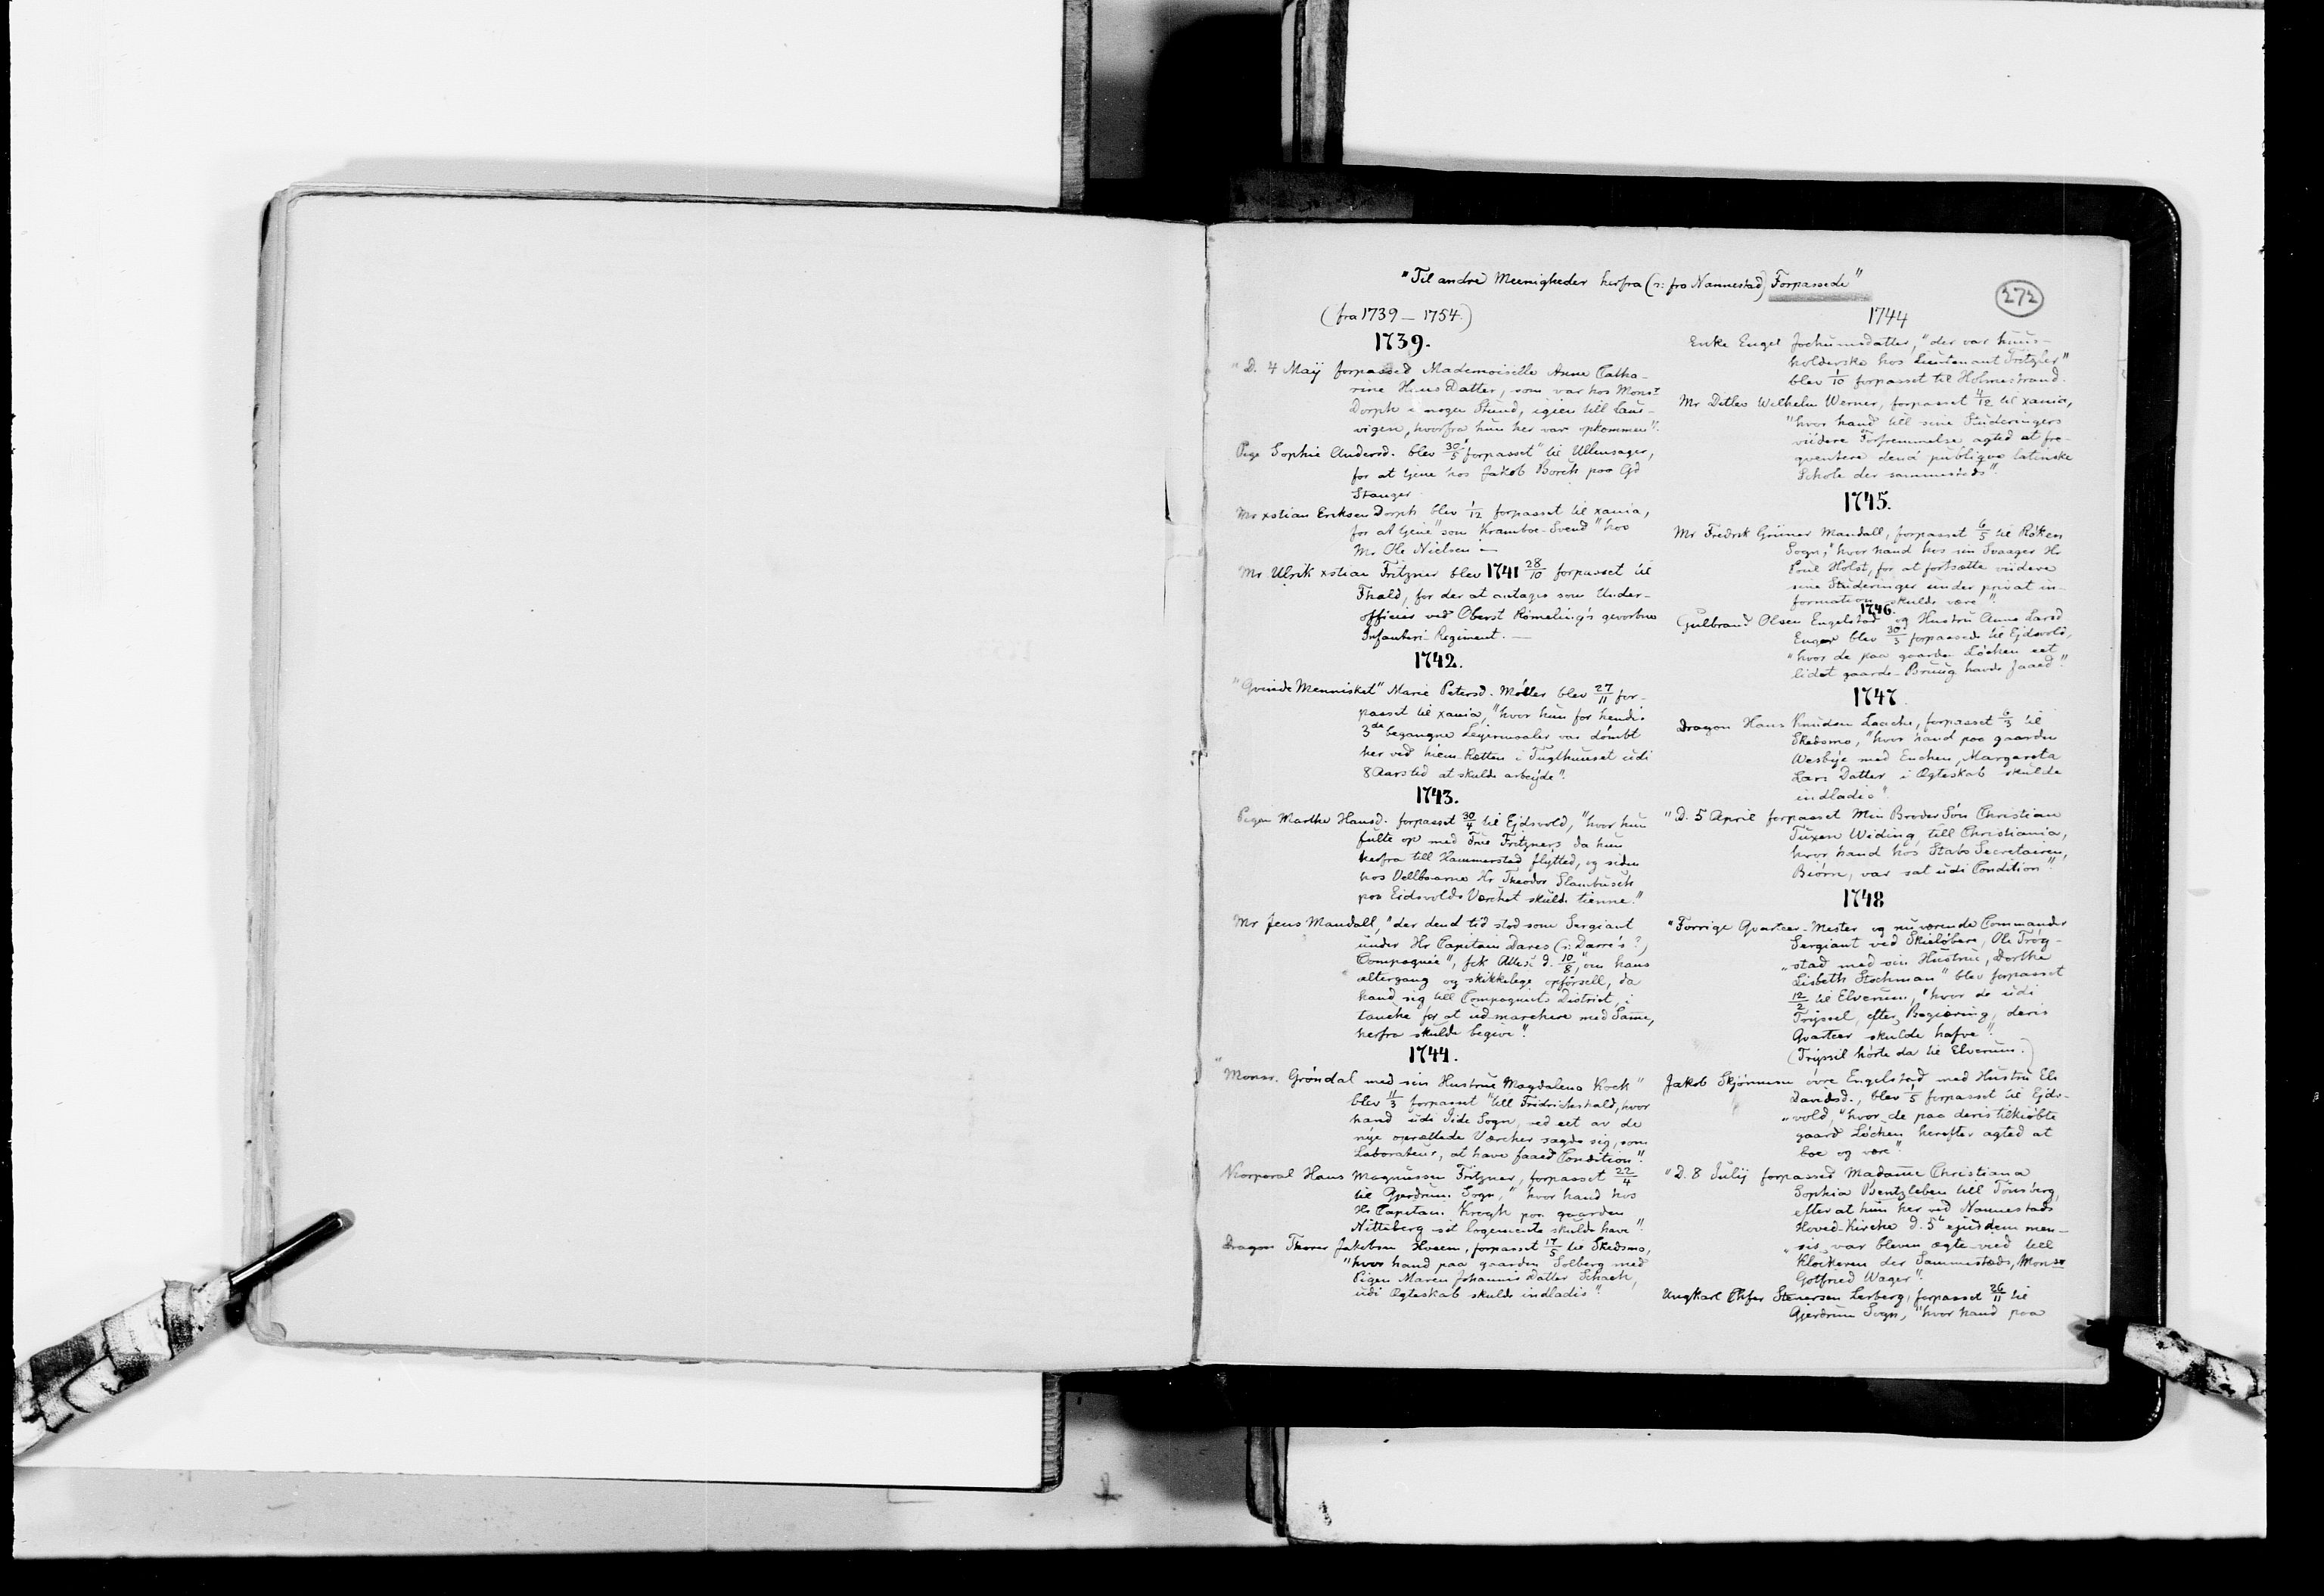 "Til andre Meenigheder herfra (ɔ: fra Nannestad) Forpassede"
272
(fra 1739 – 1754.)
1739.
"D. 4 Maij forpassed Mademoiselle Anne Catha-
rine Hins Datter, som var hos Monsr
Dorph i nogen Stund, igien till Laur-
vigen, hvorfra hun her var opkommen".
Pige Sophie Andersd. blev 30/5 "forpasset" til Ullensager,
for at tjene hos Jakob Borch paa Gd
Stanger
Mr xstian Eriksen Dorph blev 1/12 forpasset til xania,
for at tjene "som Kramboe-Svend" hos
Mr Ole Nielsen —
Mr Ulrik xstian Fritzner blev 1741 28/10 forpasset til
Fhald, for der at antages som Under-
officier ved Oberst Römeling's gevorbne
Infanteri-Regiment. —
1742.
"Qvinde Mennisket" Marie Petersd. Møller blev 27/11 for-
passet til xania, "hvor hun for hendis
3de begangne Leyermaaler var dömbt
her ved hiem-Retten i Tugthuuset udi
8 Aars tid at skulde arbeyde".
1743.
Pigen Marthe Hansd. forpasset 30/4 til Ejdsvold, "hvor hun
fulte op med Frue Fritzners da hun
herfra till Hammerstad flytted, og siden
hos Vellbaarne Hr Theodor Slambusch
paa Eidsvolds Værchet skulde tienne."
Mr Jens Mandall, "der dend tid stod som Sergiant
under Hr Capitain Dares (ɔ: Darre's?)
Compagnie", fik Attest d. 10/8, "om hans
altergang og skikkelige opförsell, da
hand sig till Compagniets District, i
tancke for at ud-marchere med Same,
herfra skulde begive".
1744.
"Monsr. Gröndal med sin Hustrue Magdalena Kock"
blev 11/3 forpasset "till Fridrichshald, hvor
hand udi Jide Sogn, ved eet av de
nye oprættede Værcher sagde sig, som
Laborateur, at have faaed Condition".
Korporal Hans Magnussen Fritzner, forpasset 22/4
til Gjerdrum Sogn, "hvor hand hos
Hr Capitain Krogh paa gaarden
Nitteberg sit logemente skulde have".
Dragon Thorer Jakobsen Hveem, forpasset 17/5 til Skedsmo,
"hvor hand paa gaarden Solberg med
Pigen Maren Johannis Datter Schach,
udi Ægteskab skulde indladis".
1744
Enke Engel Jochumsdatter, "der var huus-
holderske hos Lieutenant Fritzler"
blev 1/10 forpasset til Holmestrand.
Mr Ditlev Wilhelm Werner, forpasset 4/12 til xania,
"hvor hand till sine Studeringers
viidere Forfremmelse agted at fre-
qventere dend publiqve latinske
Schole der sammesteds".
1745.
Mr Fredrik Grüner Mandall, forpasset 6/5 til Röken
Sogn, "hvor hand hos sin Svaager Hr
Poul Holst, for at fortsætte viidere
sine Studeringer under privat in-
formation skulde være".
1746.
Gulbrand Olsen Engelstad og Hustru Anne Larsd
Enger blev 30/3 forpassede til Ejdsvold,
"hvor de paa gaarden Löcken eet
lidet gaarde-Bruug havde faaed".
1747.
Dragon Hans Knudsen Laache, forpasset 6/3 til
Skedsmo, "hvor hand paa gaarden
Wesbye med Enchen, Margareta
Lars Datter i Ægteskab skulde
indladis".
"D. 5 April forpasset Min Broder Sön Christian
Tuxen Widing till Christiania,
hvor hand hos Stabs Secretairen,
Biörn, var sat udi Condition".
1748
"Forrige Qvarteer-Mester og nu værende Commander
Sergiant ved Skielöbere, Ole Tröy-
"stad med sin Hustrue, Dorthe
Lisbeth Stochman" blev forpasset
12/2 til Elverum, "hvor de udi
Tryssel, efter Begiæring, deris
Qvarteer skulde hafve".
(Tryssil hörte da til Elverum.)
Jakob Skjönnesen övre Engelstad med Hustru Els
Davidsd., blev 1/5 forpasset til Ejds-
"vold, "hvor de paa deris tilkiöbte
gaard Löcken herefter agted at
boe og være".
"D. 8 Julij forpassed Madame Christiana
Sophia Bentzleben till Tönsberg,
efter at hun her ved Nannestads
Hoved-Kirche d. 5t ejusdem men-
"sis var bleven ægte-viid till
Klockeren der Sammesteds, Monsr
Gotfried Wager".
Ungkarl Chfer Stenersen Lerberg, forpasset 26/11 til
Gjerdrum Sogn, "hvor hand paa